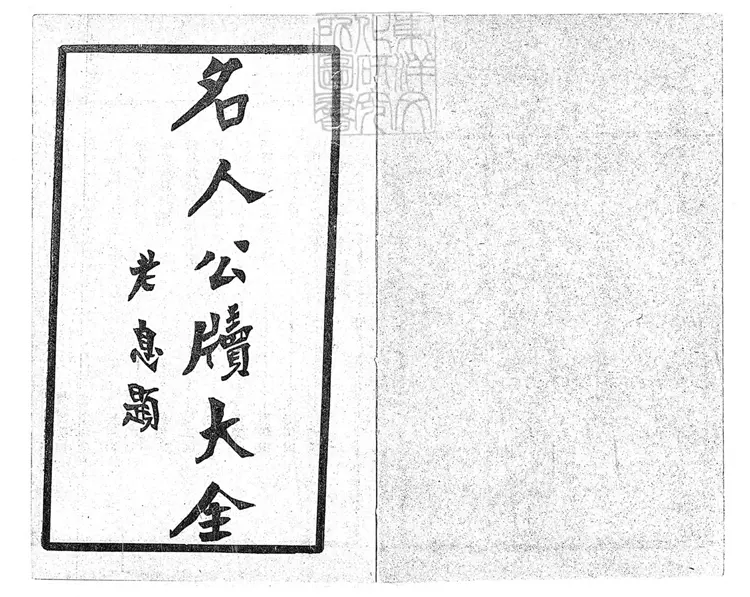 東洋文
化研究
所圖書
名人公牘大全
老息題